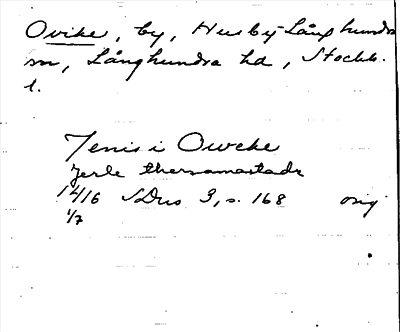 Ovike, by, Husby-Långhundra
sn, Långhundra hd, Stockh.
l.
Jenis i Oweke
Jerle thersamastadz
1416 SDns 3, s. 168 orig
1/7